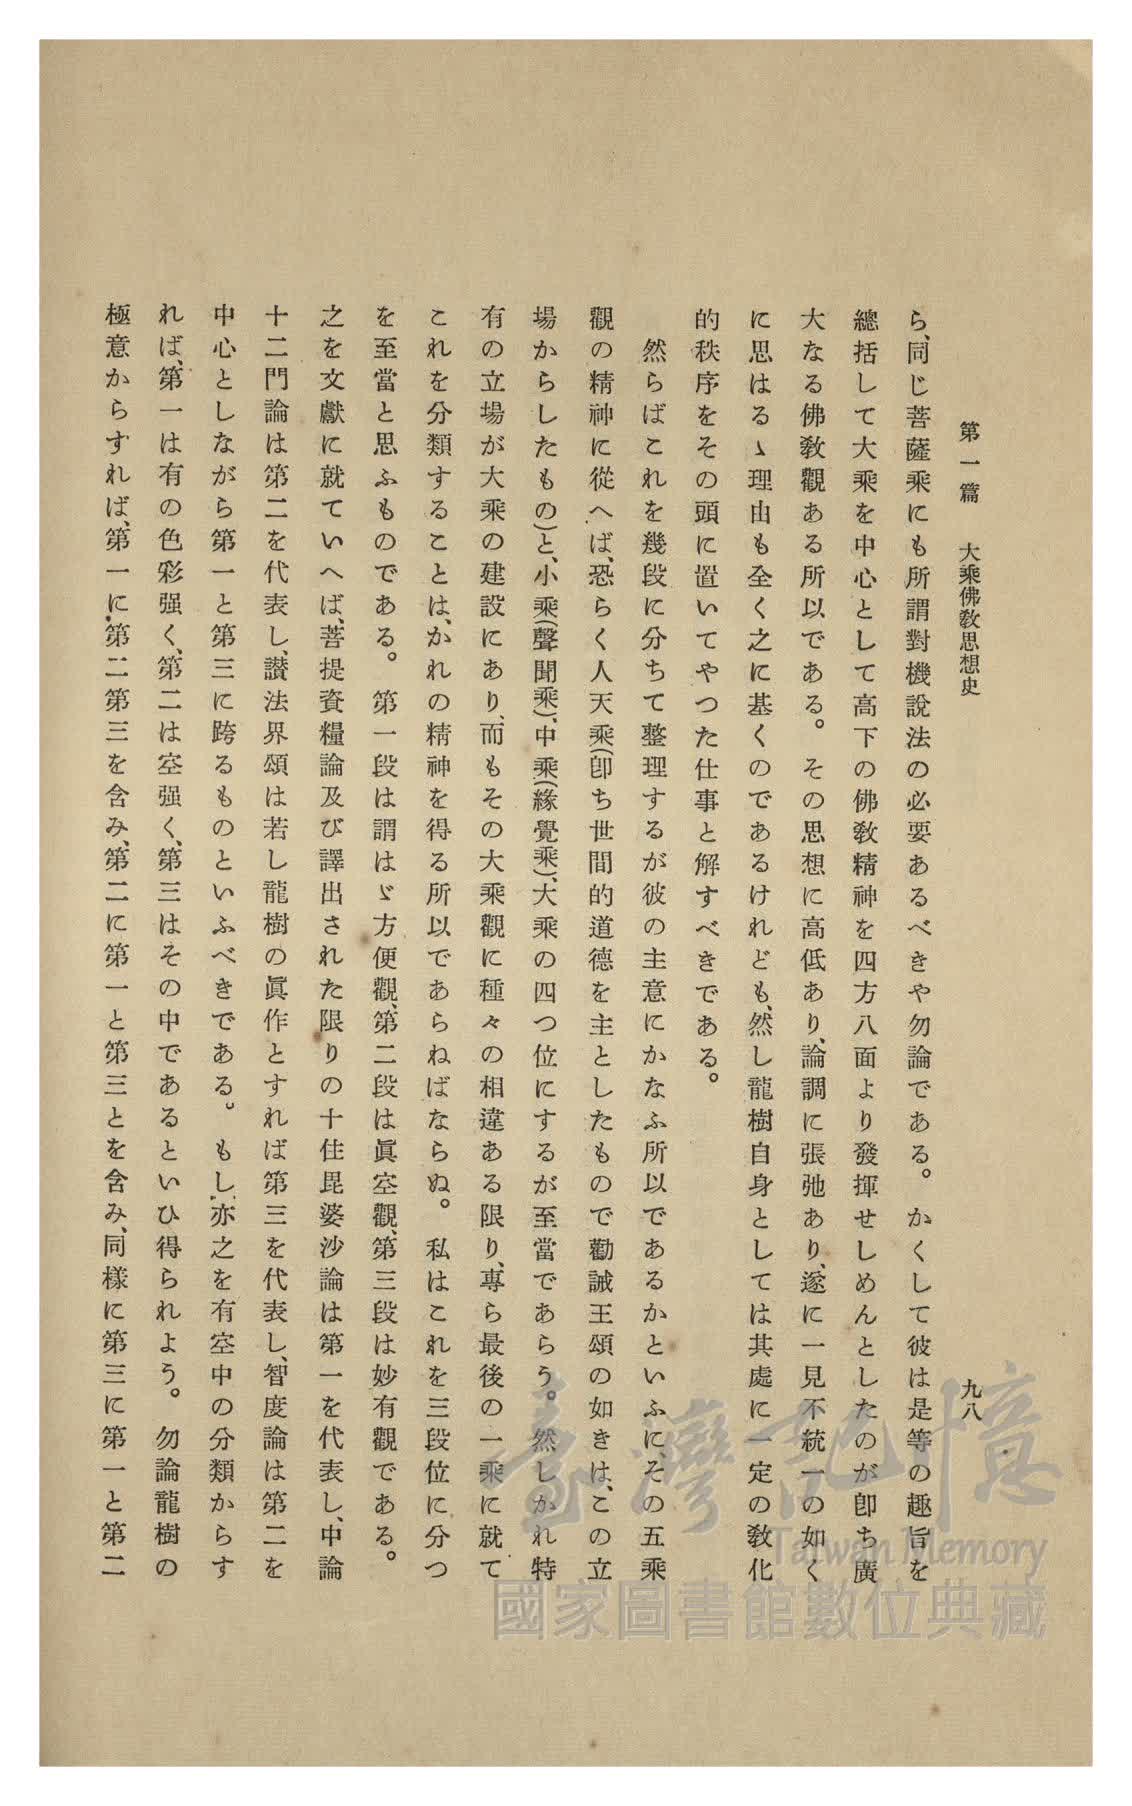 第一篇　大乘佛敎思想史　九八
ら、同じ菩薩乘にも所謂對機說法の必要あるべきや勿論である。かくして彼は是等の趣旨を
總括して大乘を中心として高下の佛敎精神を四方八面より發揮せしめんとしたのが卽ち廣
大なる佛敎觀ある所以である。その思想に高低あり、論調に張弛あり、遂に一見不統一の如く
に思はるゝ理由も全く之に基くのであるけれども、然し龍樹自身としては其處に一定の敎化
的秩序をその頭に置いてやつた仕事と解すべきである。
然らばこれを幾段に分ちて整理するが彼の主意にかなふ所以であるかといふに、その五乘
觀の精神に從へば、恐らく人天乘(卽ち世間的道德を主としたもので勸誡王頌の如きは、この立
場からしたもの)と、小乘(聲聞乘)、中乘(緣覺乘)、大乘の四つ位にするが至當であらう。然しかれ特
有の立場が大乘の建設にあり、而もその大乘觀に種々の相違ある限り、專ら最後の一乘に就て
これを分類することは、かれの精神を得る所以であらねばならぬ。私はこれを三段位に分つ
を至當と思ふものである。第一段は謂はゞ方便觀、第二段は眞空觀、第三段は妙有觀である。
之を文獻に就ていへば、菩提資糧論及び譯出された限りの十住毘婆沙論は第一を代表し、中論
十二門論は第二を代表し、讃法界頌は若し龍樹の眞作とすれば第三を代表し、智度論は第二を
中心としながら第一と第三に跨るものといふべきである。もし、亦之を有空中の分類からす
れば、第一は有の色彩强く、第二は空强く、第三はその中であるといひ得られよう。勿論龍樹の
極意からすれば、第一に、第二第三を含み、第二に第一と第三とを含み、同樣に第三に第一と第二
臺灣記憶
Taiwan Memory
國家圖書館數位典藏